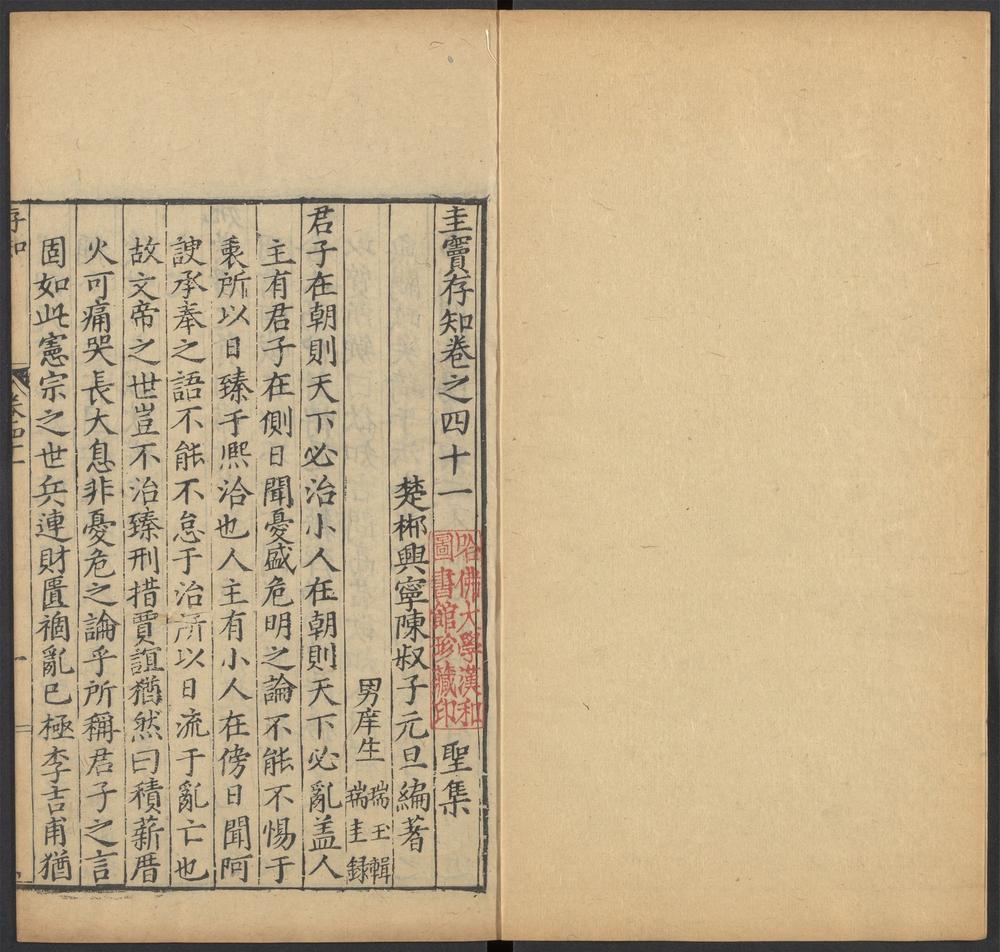 圭竇存知卷之四十一 聖集
哈佛大學漢和
圖書館珍藏印
楚郴興寧陳叔子元旦編著
男庠生
瑞玉輯
瑞圭録
君子在朝則天下必治小人在朝則天下必亂盖人
主有君子在側日聞憂盛危明之論不能不惕于
衷所以日臻于熈洽也人主有小人在傍日聞阿
諛承奉之語不能不怠于治所以日流于亂亡也
故文帝之世豈不治臻刑措賈誼猶然曰積薪厝
火可痛哭長大息非憂危之論乎所稱君子之言
固如此憲宗之世兵連財匱禍亂已極李吉甫猶
存知
卷四十一
一